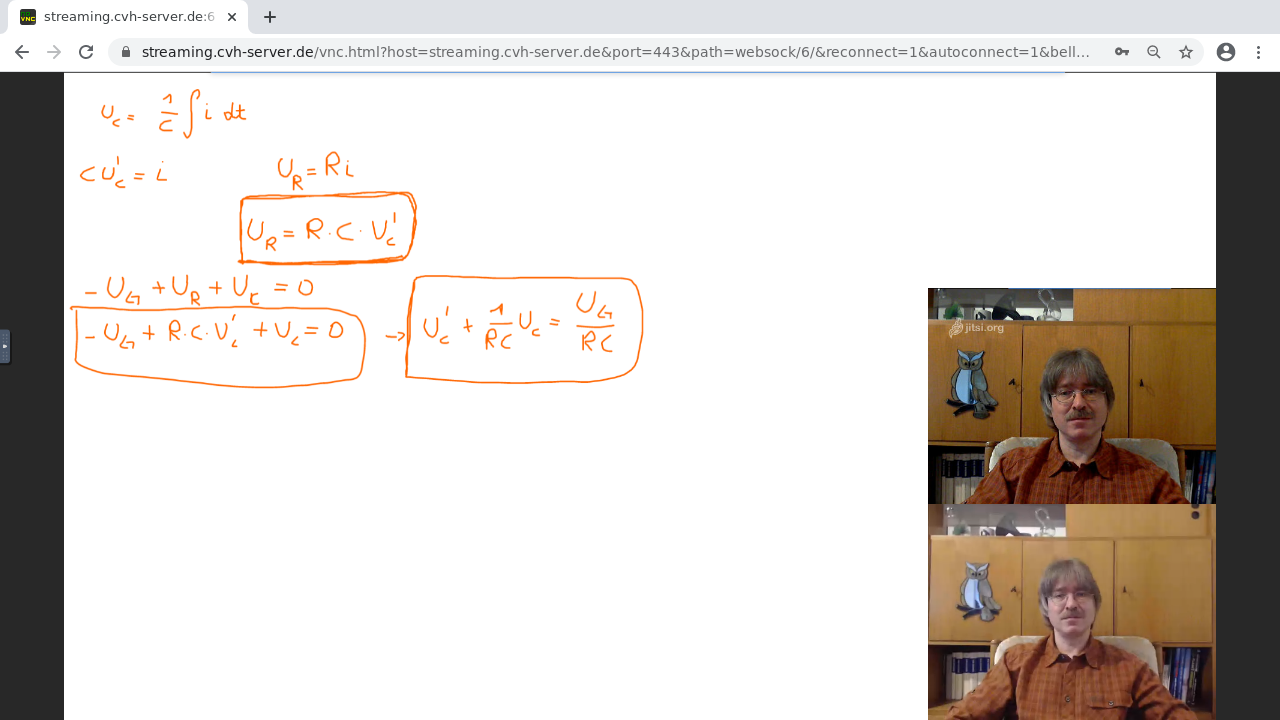 streaming.cvh-server.de:6
streaming.cvh-server.de/vnc.html?host=streaming.cvh-server.de&port=443&path=websock/6/&reconnect=1&autoconnect=1&bell...
U_c = 1/C ∫ i dt
C U_c' = i
U_R = R i
U_R = R · C · U_c'
- U_G + U_R + U_c = 0
- U_G + R·C·U_c' + U_c = 0
→ U_c' + 1/RC U_c = U_G/RC
jitsi.org